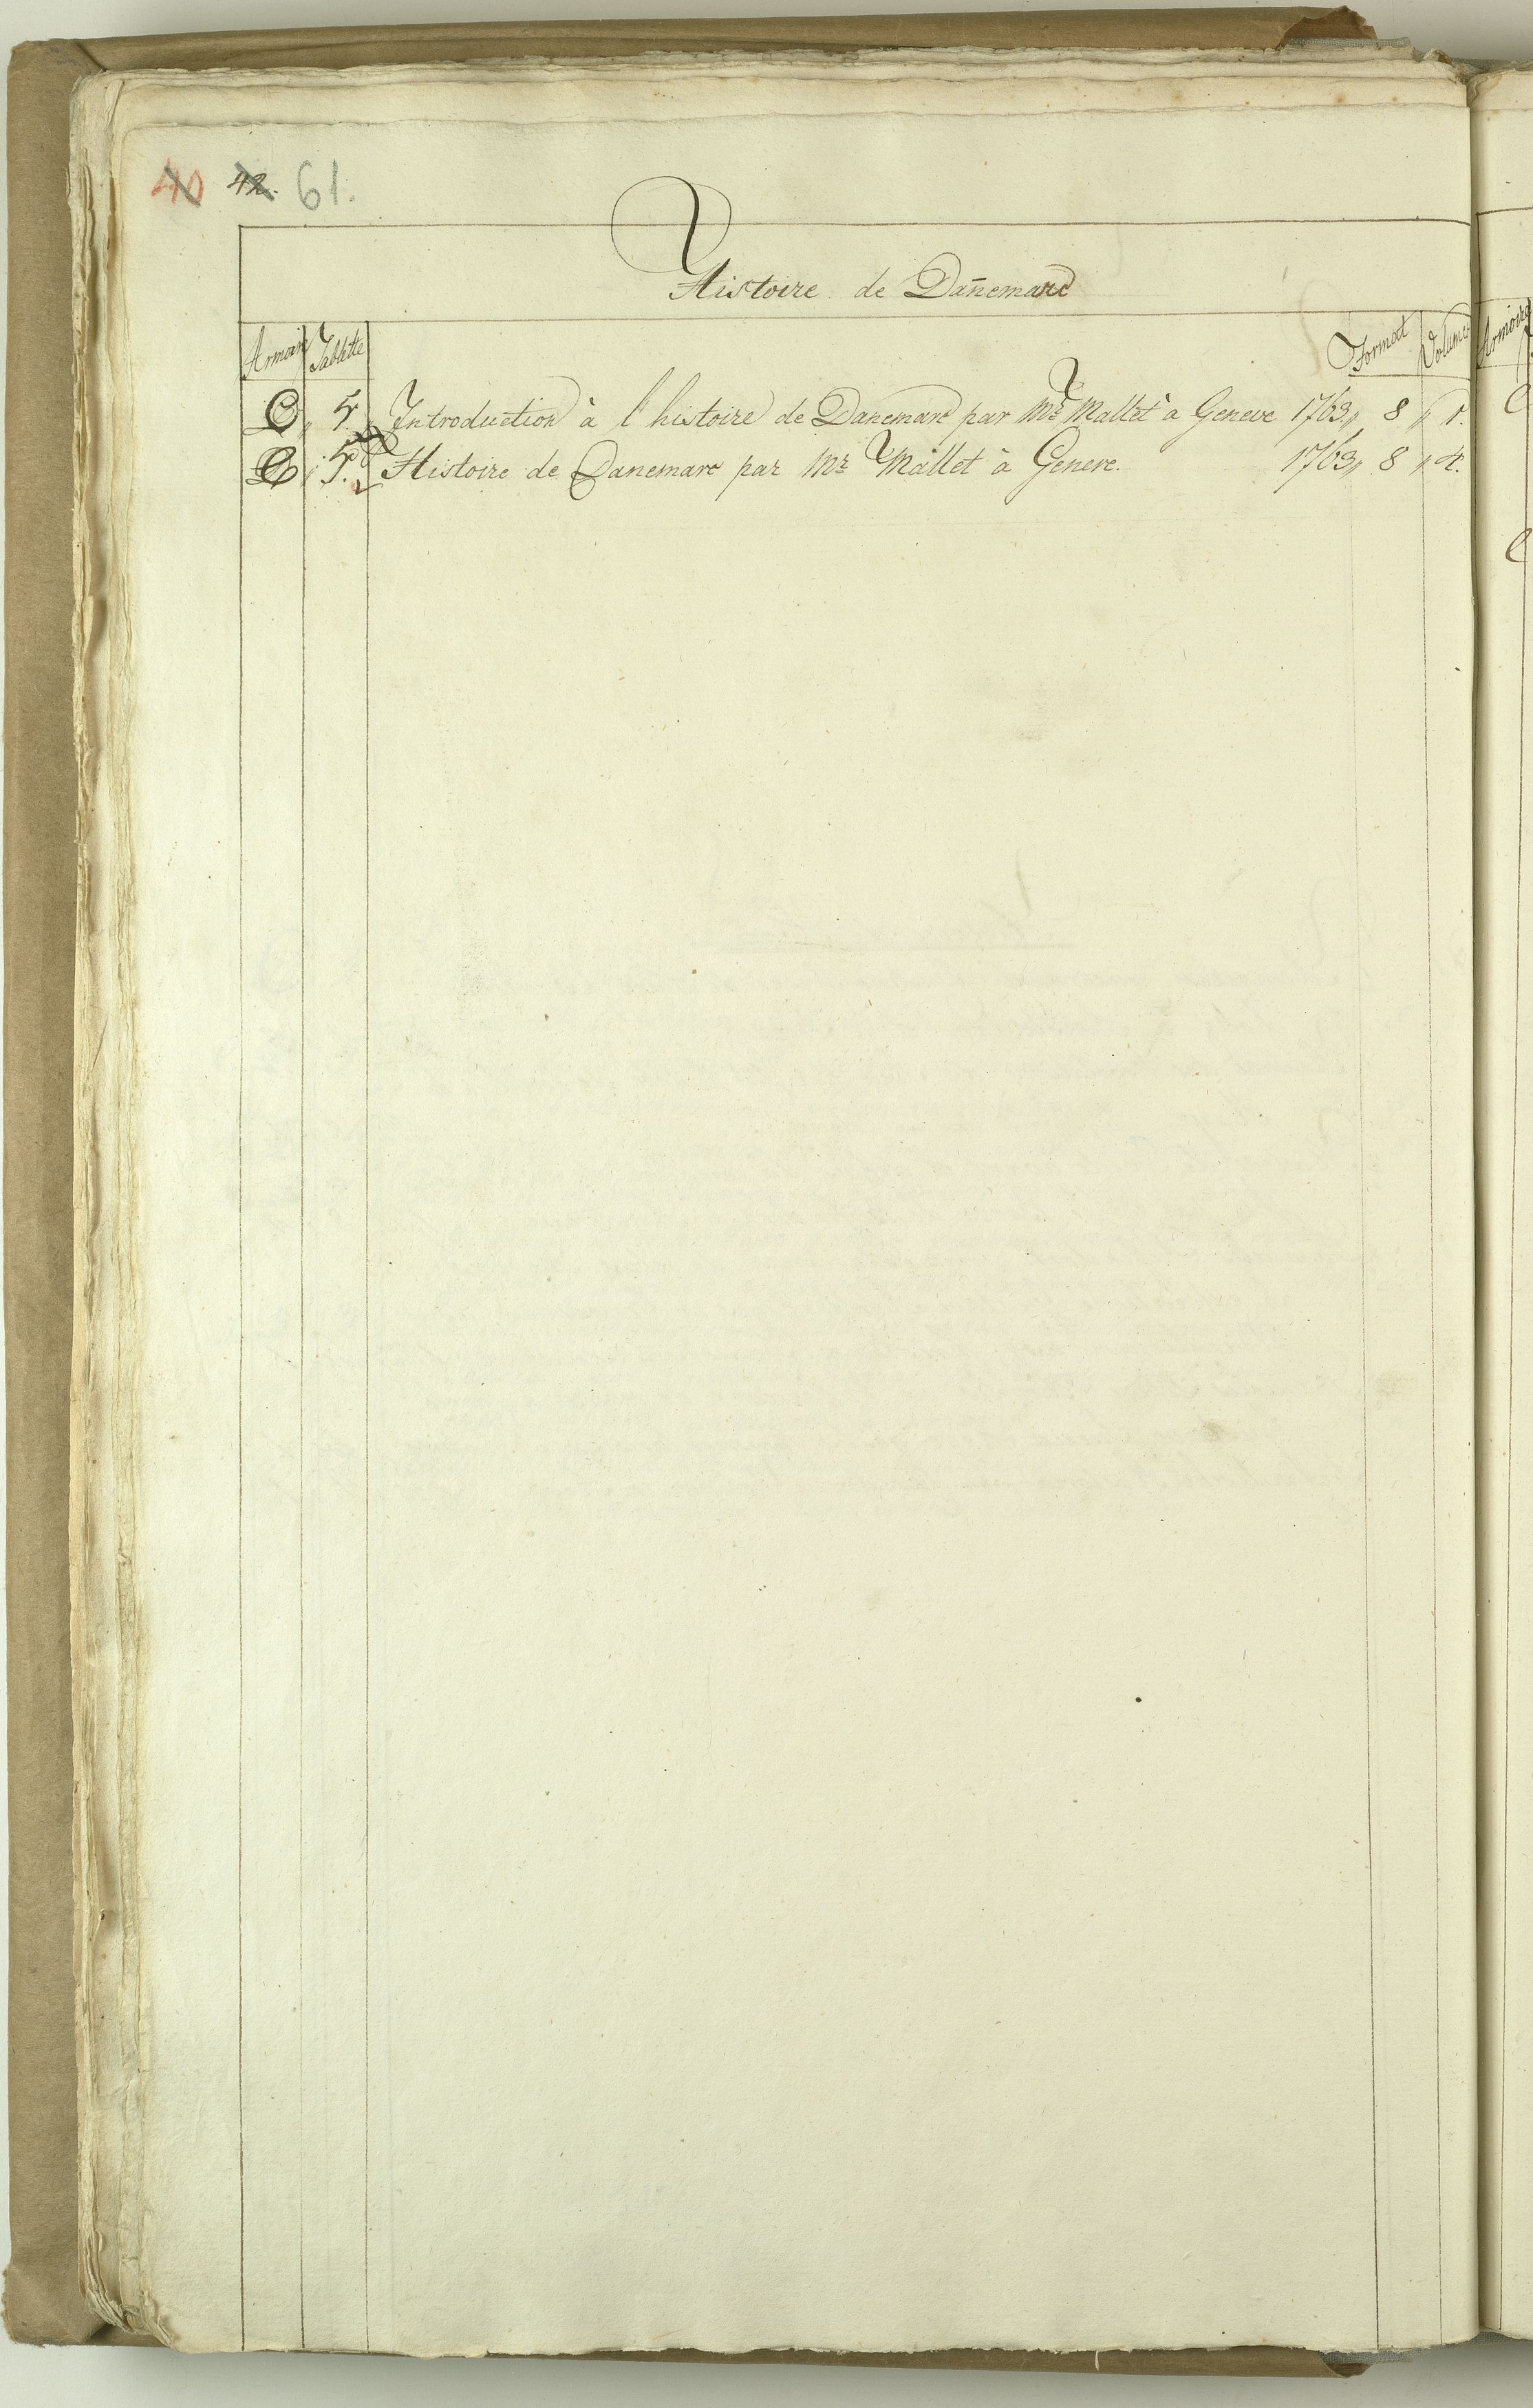 40 42. 61.
Histoire de Dañemarc
Armoire Tablette Format Volume
C „ 5. Introduction à l histoire de Danemarc par Mr. Mallet à Geneve 1763 „ 8 „ 1.
C „ 5. Histoire de Danemarc par Mr. Mallet à Geneve. 1763 „ 8 „ 4.
Armoire
C
C